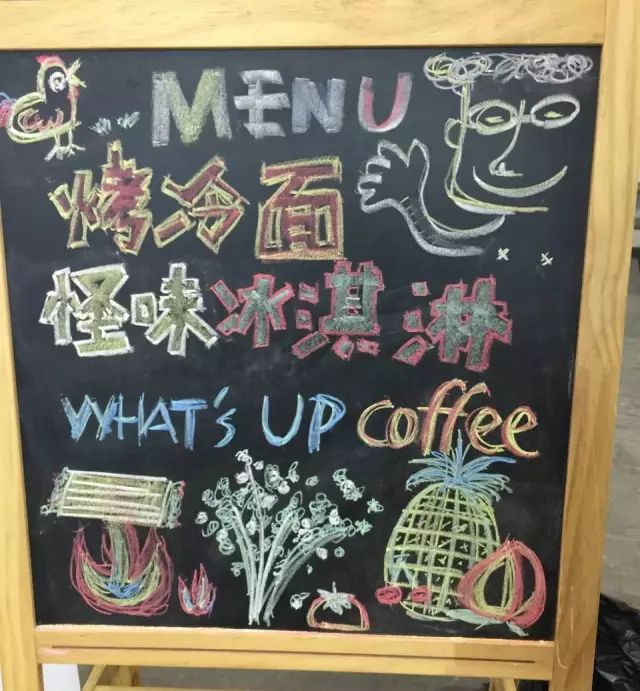 MENU
烤冷面
怪味冰淇淋
WHAT'S UP coffee